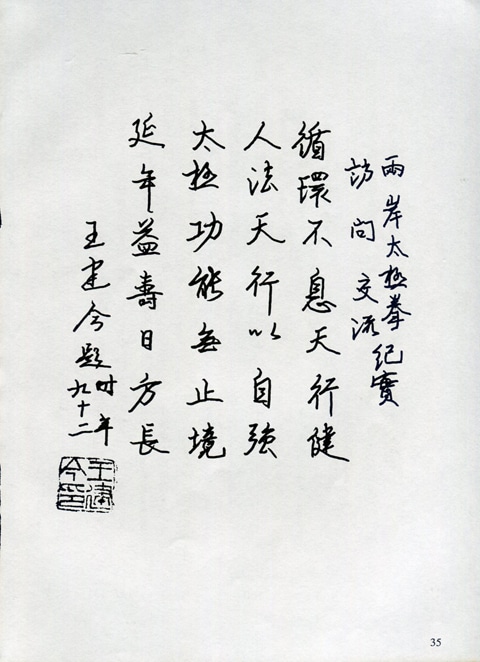 兩岸太極拳紀實
訪問交流
循環不息天行健
人法天行以自強
太極功能無止境
延年益壽日方長
王建今題時年九十二
王建今印
35